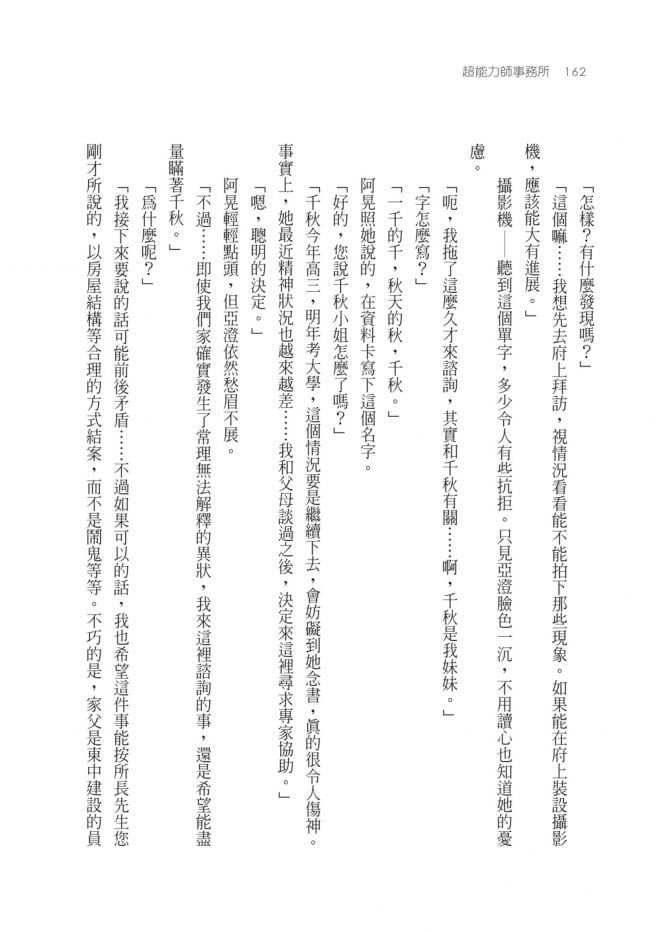 超能力師事務所 162
「怎樣？有什麼發現嗎？」
「這個嘛……我想先去府上拜訪，視情況看看能不能拍下那些現象。如果能在府上裝設攝影
機，應該能大有進展。」
攝影機——聽到這個單字，多少令人有些抗拒。只見亞澄臉色一沉，不用讀心也知道她的憂
慮。
「呃，我拖了這麼久才來諮詢，其實和千秋有關……啊，千秋是我妹妹。」
「字怎麼寫？」
「一千的千，秋天的秋，千秋。」
阿晃照她說的，在資料卡寫下這個名字。
「好的，您說千秋小姐怎麼了嗎？」
「千秋今年高三，明年考大學，這個情況要是繼續下去，會妨礙到她念書，真的很令人傷神。
事實上，她最近精神狀況也越來越差……我和父母談過之後，決定來這裡尋求專家協助。」
「嗯，聰明的決定。」
阿晃輕輕點頭，但亞澄依然愁眉不展。
「不過……即使我們家確實發生了常理無法解釋的異狀，我來這裡諮詢的事，還是希望能盡
量瞞著千秋。」
「為什麼呢？」
「我接下來要說的話可能前後矛盾……不過如果可以的話，我也希望這件事能按所長先生您
剛才所說的，以房屋結構等合理的方式結案，而不是鬧鬼等等。不巧的是，家父是東中建設的員